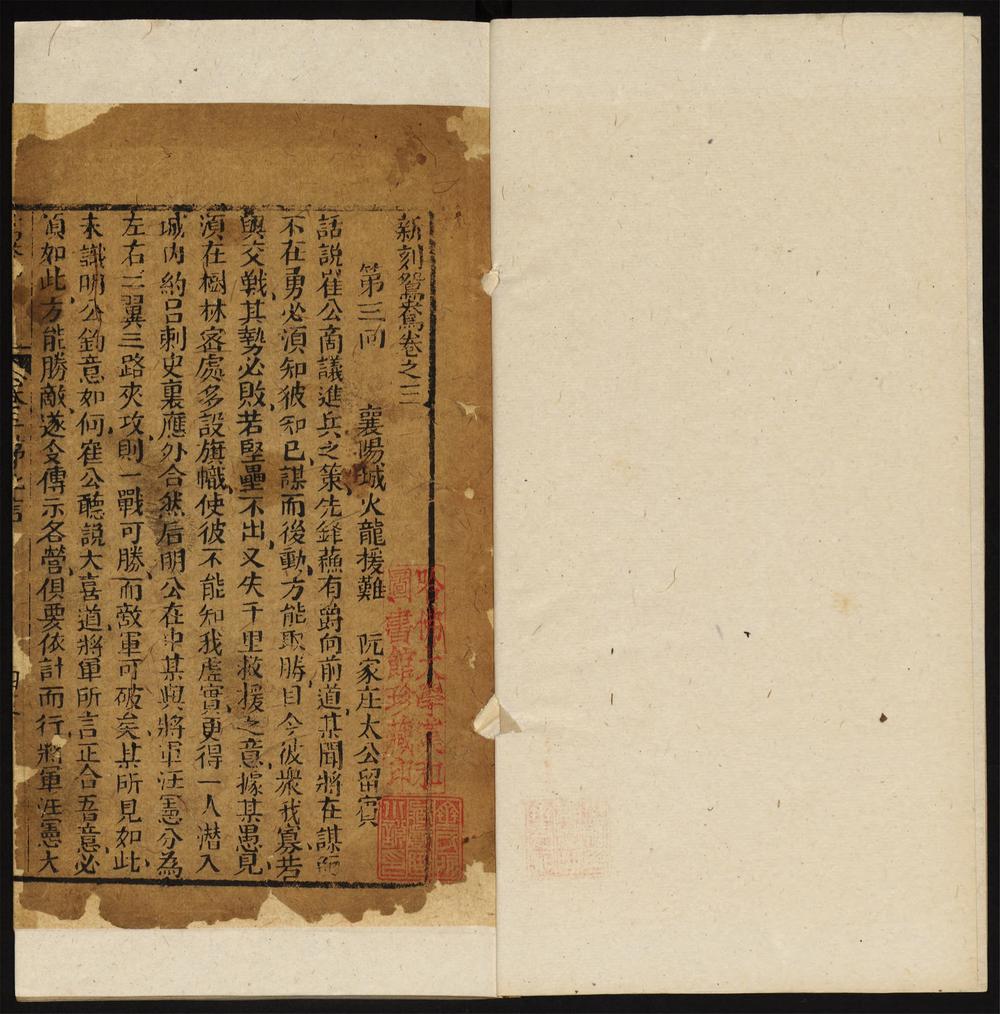 新刻鴛鴦卷之三
第三回　襄陽城火龍援難　阮家庄太公留賓
話說崔公商議進兵之策先鋒蘓有爵向前道某聞將在謀而
不在勇必湏知彼知已謀而後動方能取勝目今彼衆我寡若
與交戰其勢必敗若堅壘不出又失千里救援之意據某愚見
湏在樹林密處多設旗幟使彼不能知我虛實更得一人潜入
城内約吕刺史裏應外合然后明公在中某與將軍汪憲分為
左右二翼三路夾攻則一戰可勝而敵軍可破矣某所見如此
未識明公鈞意如何崔公聽說大喜道將軍所言正合吾意必
湏如此方能勝敵遂令傳示各營俱要依計而行將軍汪憲大
哈佛大學漢和
圖書館珍藏印